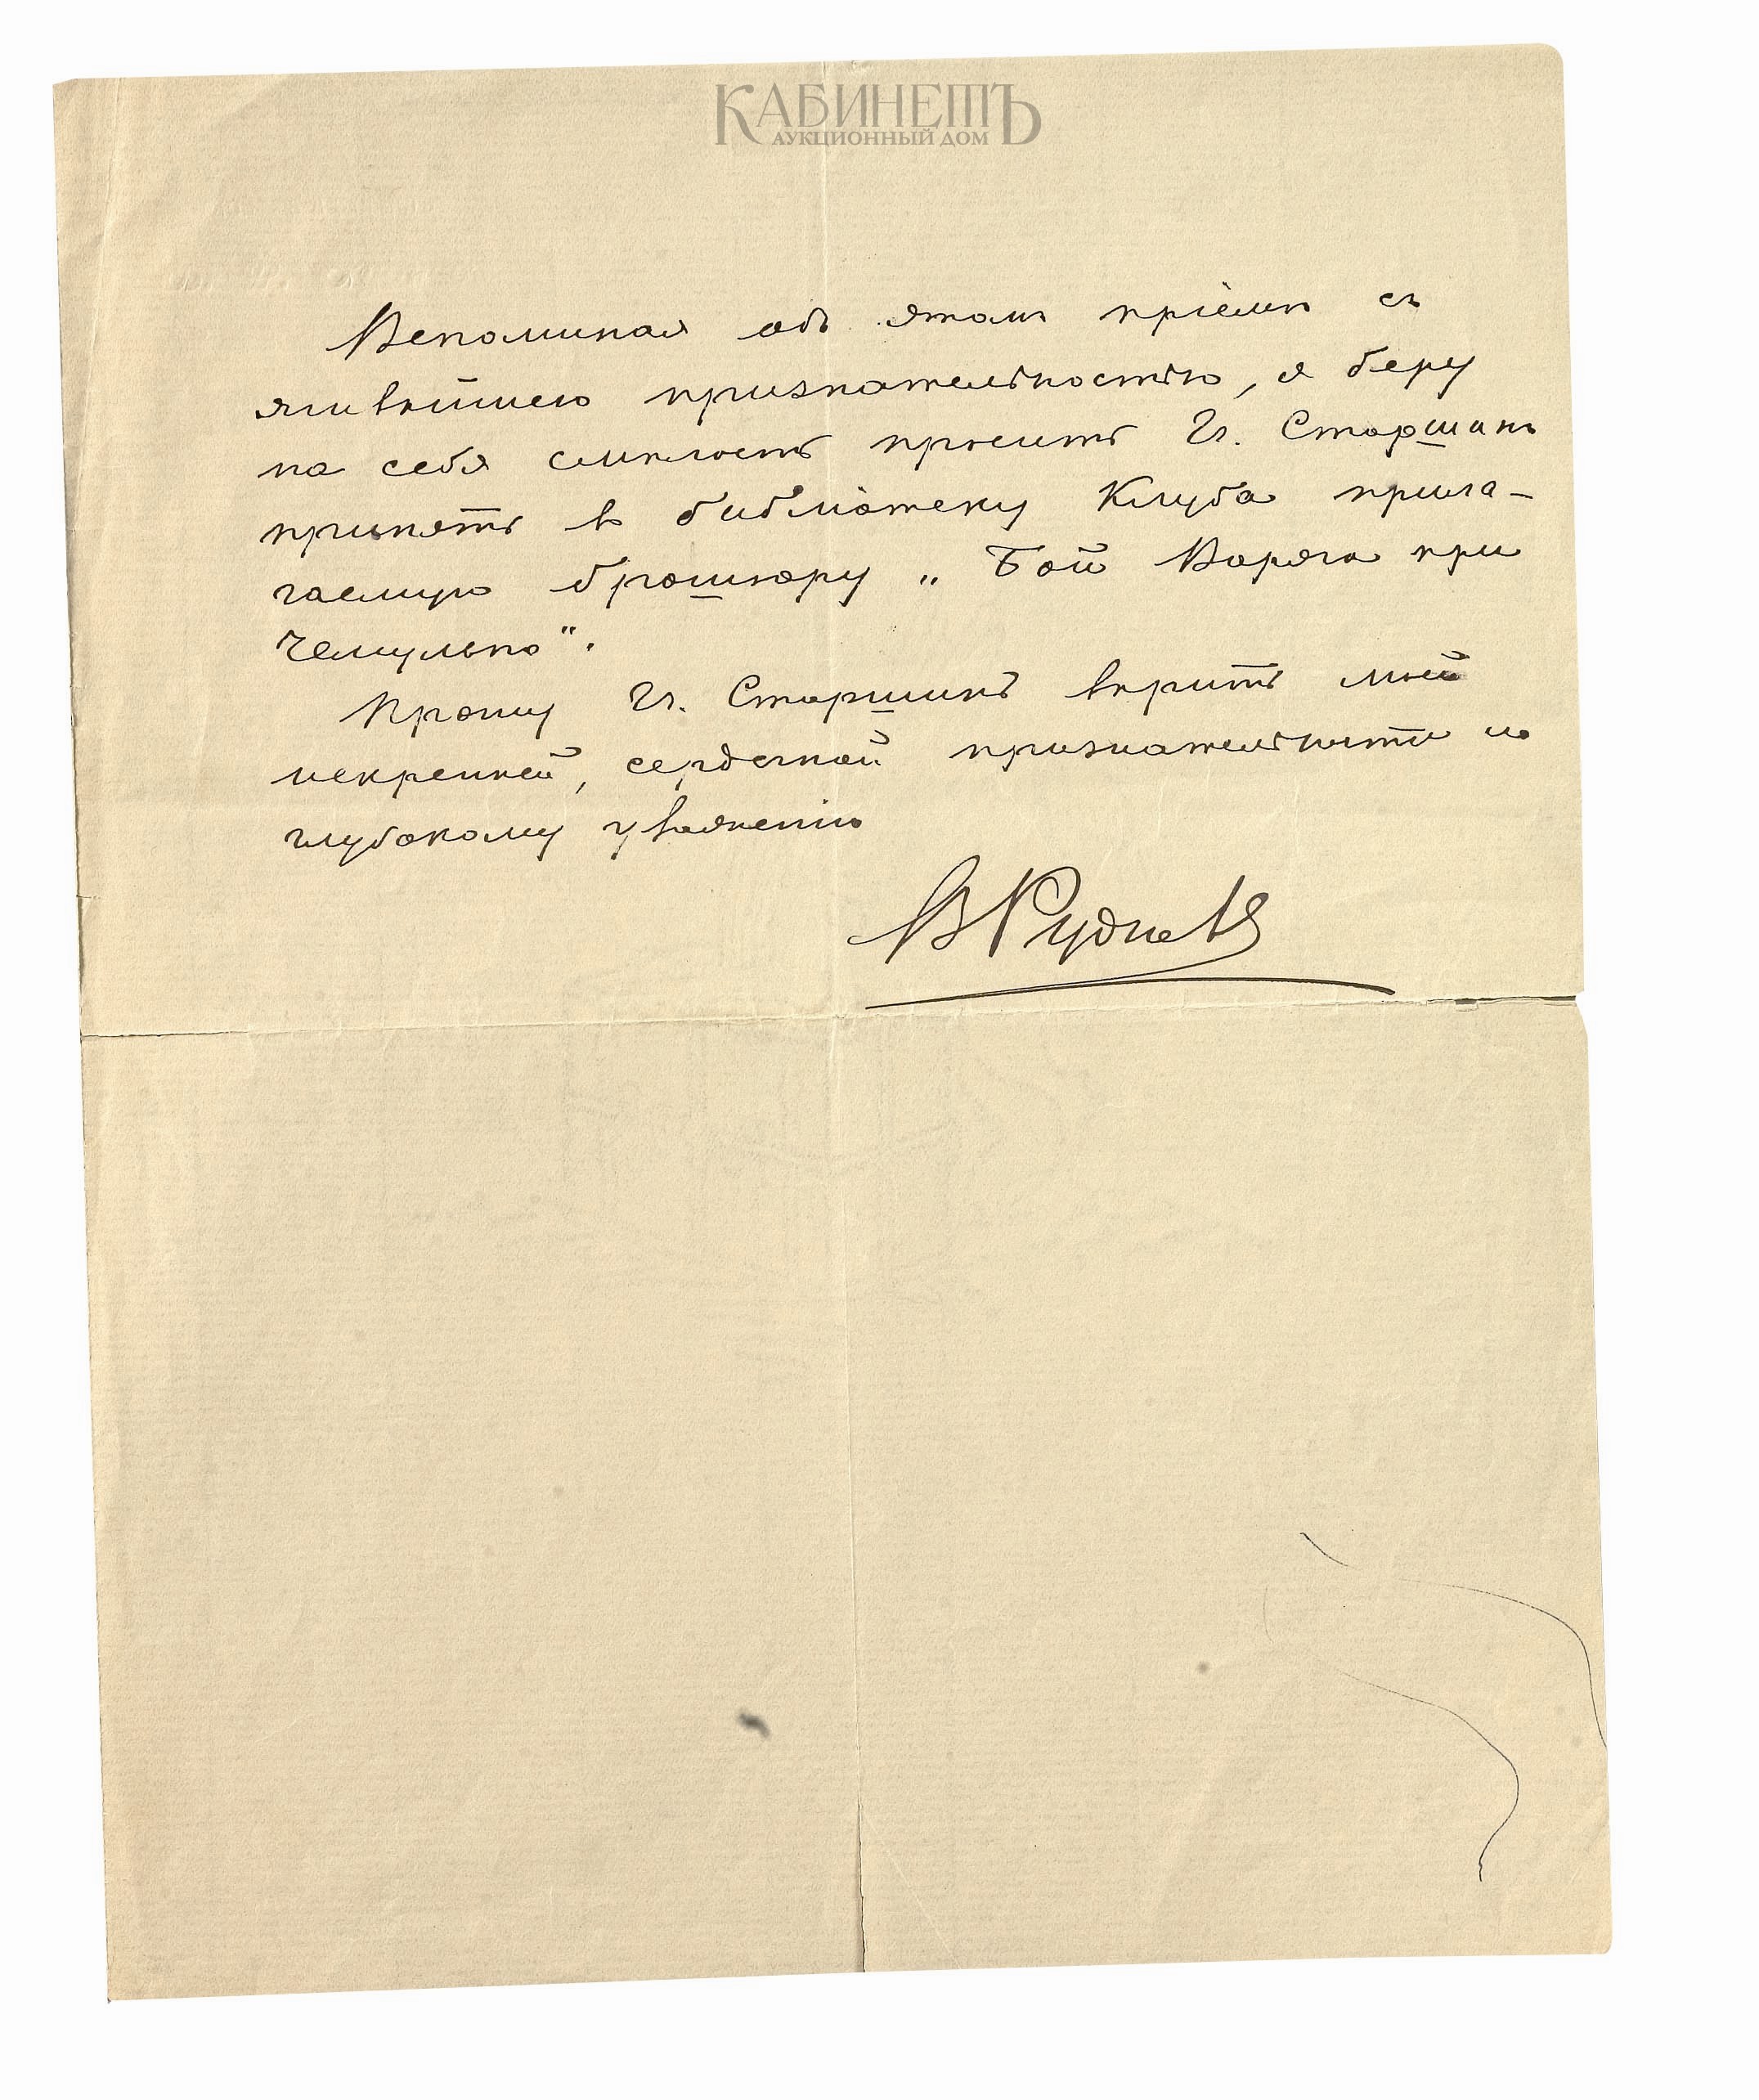 КАБИНЕТЪ
АУКЦИОННЫЙ ДОМ
Вспоминая объ этомъ пріемѣ съ
живѣйшею признательностью, я беру
на себя смѣлость просить Гг. Старшинъ
принять въ библіотеку Клуба прила-
гаемую брошюру „Бой Варяга при
Чемульпо".
Прошу Гг. Старшинъ вѣрить моей
искренней, сердечной признательности и
глубокому уваженію
В Руднев